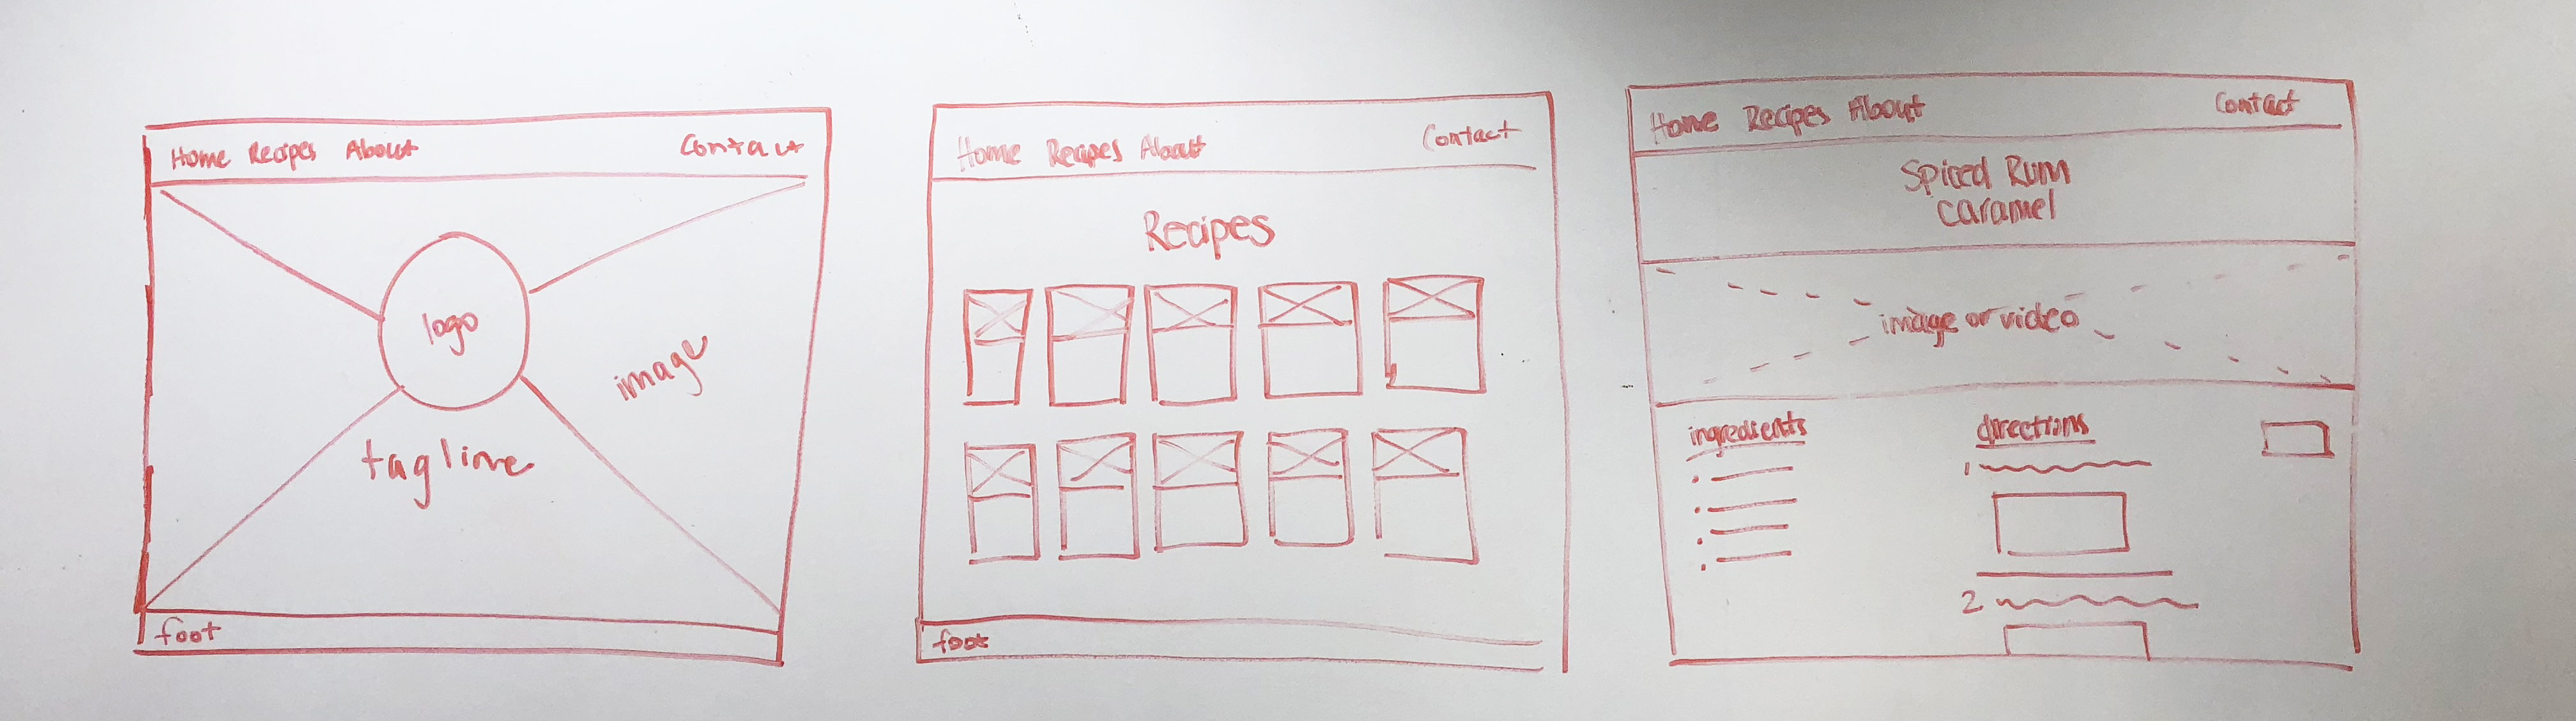 Home Recipes About Contact
logo
image
tagline
foot
Home Recipes About Contact
Recipes
foot
Home Recipes About Contact
Spiced Rum
Caramel
image or video
ingredients
directions
1
2